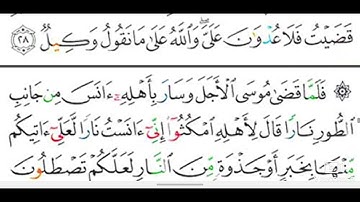 قَضَيْتُ فَلَا عُدْوَٰنَ عَلَىَّ ۖ وَٱللَّهُ عَلَىٰ مَا نَقُولُ وَكِيلٌ ٢٨
۞ فَلَمَّا قَضَىٰ مُوسَى ٱلْأَجَلَ وَسَارَ بِأَهْلِهِۦٓ ءَانَسَ مِن جَانِبِ
ٱلطُّورِ نَارًا قَالَ لِأَهْلِهِ ٱمْكُثُوٓا۟ إِنِّىٓ ءَانَسْتُ نَارًا لَّعَلِّىٓ ءَاتِيكُم
مِّنْهَا بِخَبَرٍ أَوْ جَذْوَةٍ مِّنَ ٱلنَّارِ لَعَلَّكُمْ تَصْطَلُونَ